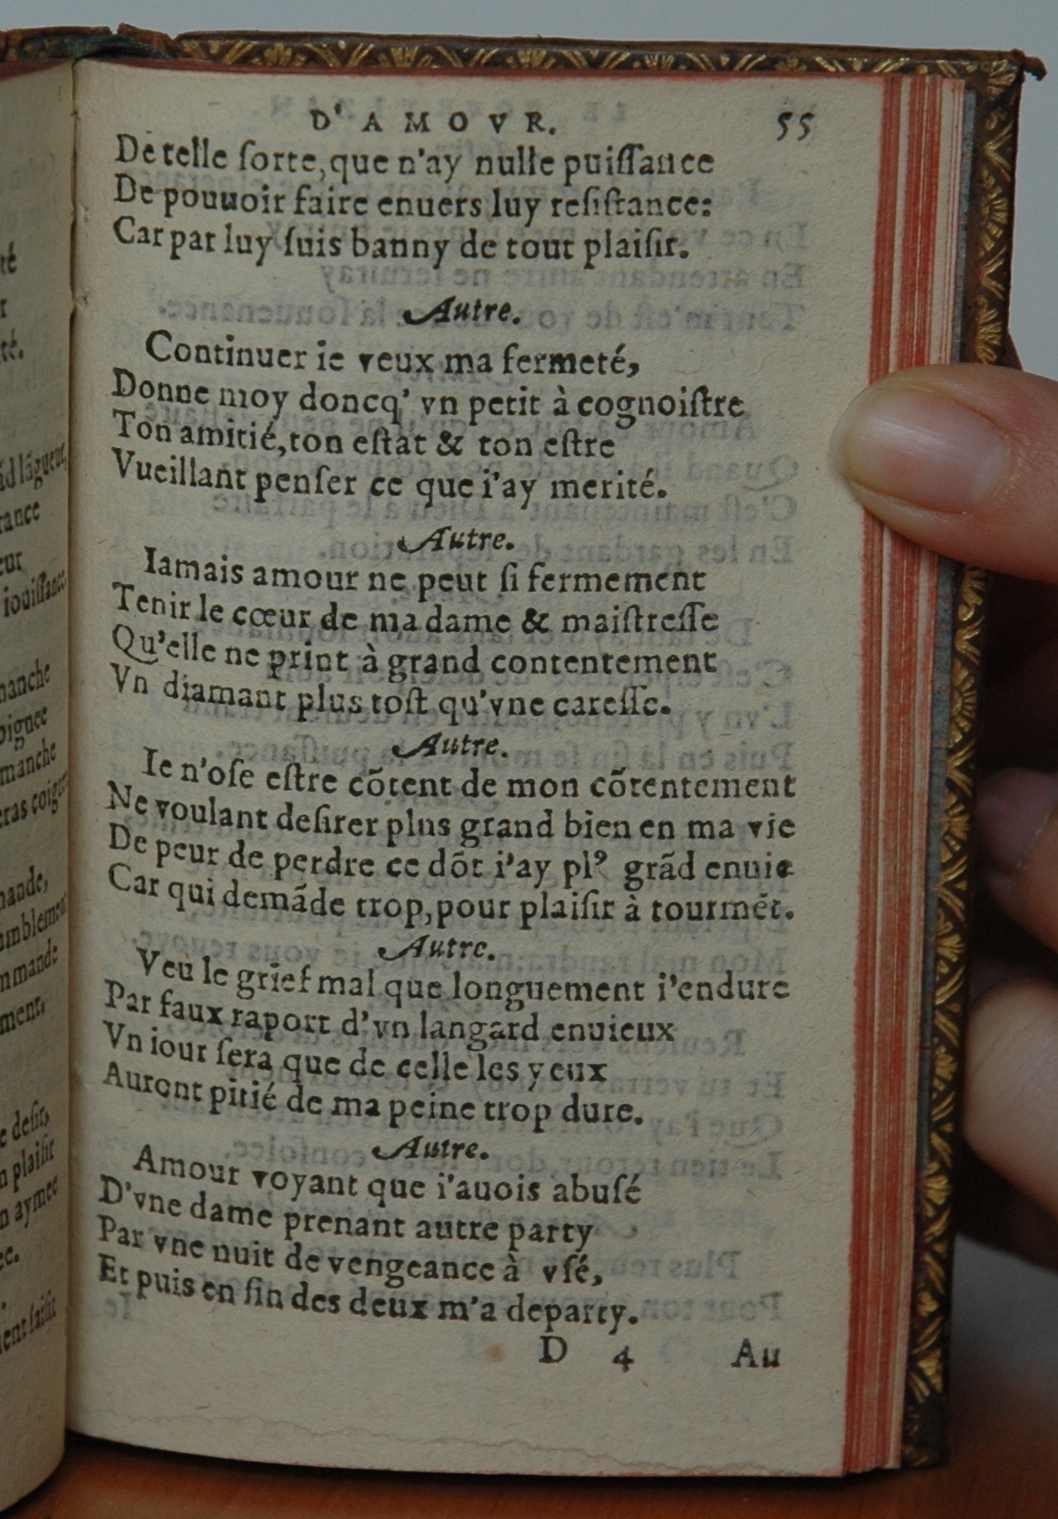 D'AMOVR. 55
De telle ſorte, que n'ay nulle puiſſance
De pouuoir faire enuers luy reſiſtance:
Car par luy ſuis banny de tout plaiſir.
Autre.
Continuer ie veux ma fermeté,
Donne moy doncq' vn petit à cognoiſtre
Ton amitié, ton eſtat & ton eſtre
Vueillant penſer ce que i'ay merité.
Autre.
Iamais amour ne peut ſi fermement
Tenir le cœur de ma dame & maiſtreſſe
Qu'elle ne print à grand contentement
Vn diamant plus toſt qu'vne careſſe.
Autre.
Ie n'oſe eſtre cõtent de mon cõtentement
Ne voulant deſirer plus grand bien en ma vie
De peur de perdre ce dõt i'ay plꝰ grãd enuie
Car qui demãde trop, pour plaiſir à tourmẽt.
Autre.
Veu le grief mal que longuement i'endure
Par faux raport d'vn langard enuieux
Vn iour ſera que de celle les yeux
Auront pitié de ma peine trop dure.
Autre.
Amour voyant que i'auois abuſé
D'vne dame prenant autre party
Par vne nuit de vengeance à vſé,
Et puis en fin des deux m'a departy.
D 4 Au
té
té.
ãd lãgueur,
rance
eur
iouiſſance.
manche
oignee
manche
mande,
amblement
mmande
ment,
e deſir,
n plaiſir
n aymee